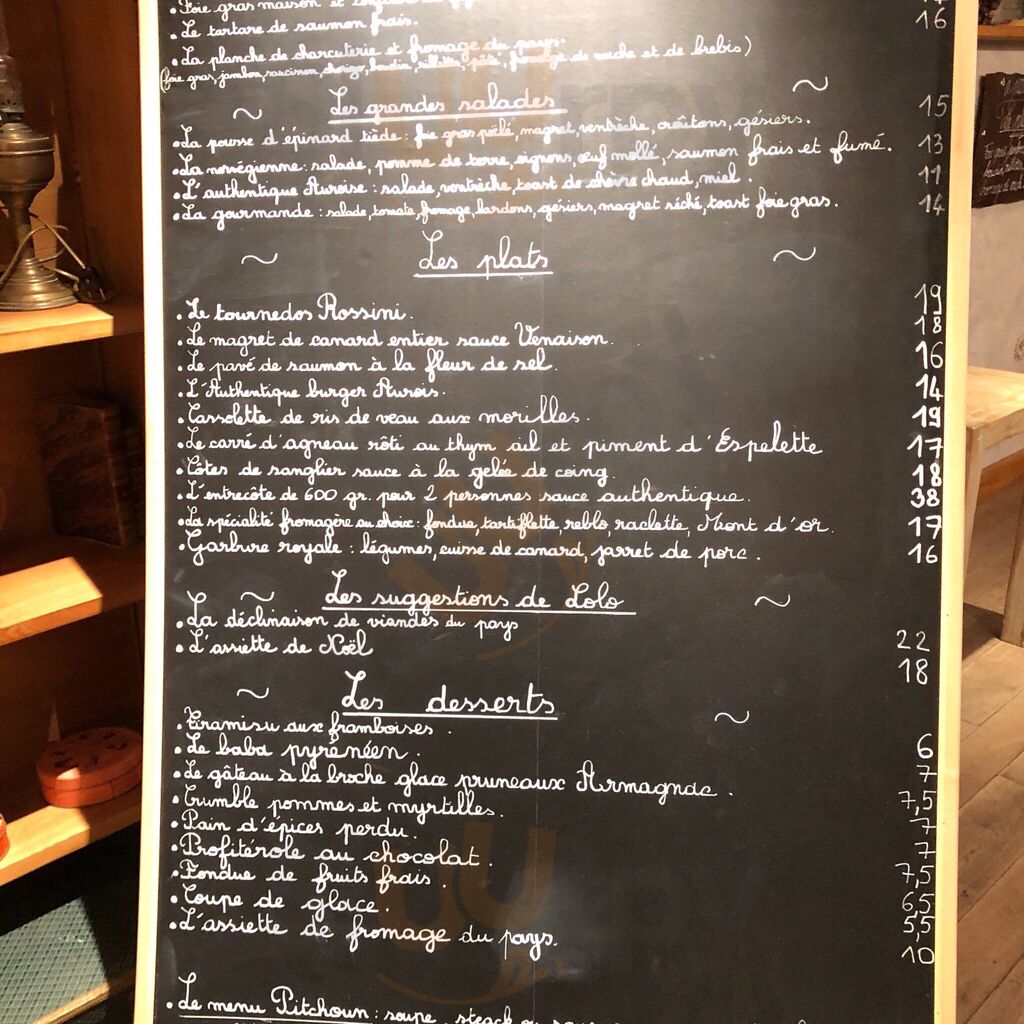 . Foie gras maison et
. Le tartare de saumon frais. 16
. La planche de charcuterie et fromage du pays.
(foie gras, jambon, saucisson, chorizo, boudin, rillettes, pâté, fromage de vache et de brebis)
~ Les grandes salades ~
. La pousse d'épinard tiède : foie gras poêlé, magret, ventrèche, croûtons, gésiers. 15
. La norvégienne : salade, pomme de terre, oignons, œuf mollé, saumon frais et fumé. 13
. L'authentique Auroise : salade, ventrèche, toast de chèvre chaud, miel. 11
. La gourmande : salade, tomate, fromage, lardons, gésiers, magret séché, toast foie gras. 14
~ Les plats ~
. Le tournedos Rossini. 19
. Le magret de canard entier sauce Venaison. 18
. Le pavé de saumon à la fleur de sel. 16
. L'Authentique burger Aurois. 14
. Cassolette de ris de veau aux morilles. 19
. Le carré d'agneau rôti au thym ail et piment d'Espelette 17
. Côtes de sanglier sauce à la gelée de coing. 18
. L'entrecôte de 600 gr. pour 2 personnes sauce authentique. 38
. La spécialité fromagère au choix : fondue, tartiflette, reblo, raclette, Mont d'or. 17
. Garbure royale : légumes, cuisse de canard, jarret de porc. 16
~ Les suggestions de Lolo ~
. La déclinaison de viandes du pays 22
. L'assiette de Noël 18
~ Les desserts ~
. Tiramisu aux framboises. 6
. Le baba pyrénéen. 7
. Le gâteau à la broche glace pruneaux Armagnac. 7,5
. Crumble pommes et myrtilles. 7
. Pain d'épices perdu. 7
. Profitérole au chocolat. 7,5
. Fondue de fruits frais. 6,5
. Coupe de glace. 5,5
. L'assiette de fromage du pays. 10
. Le menu Pitchoun : soupe, steack